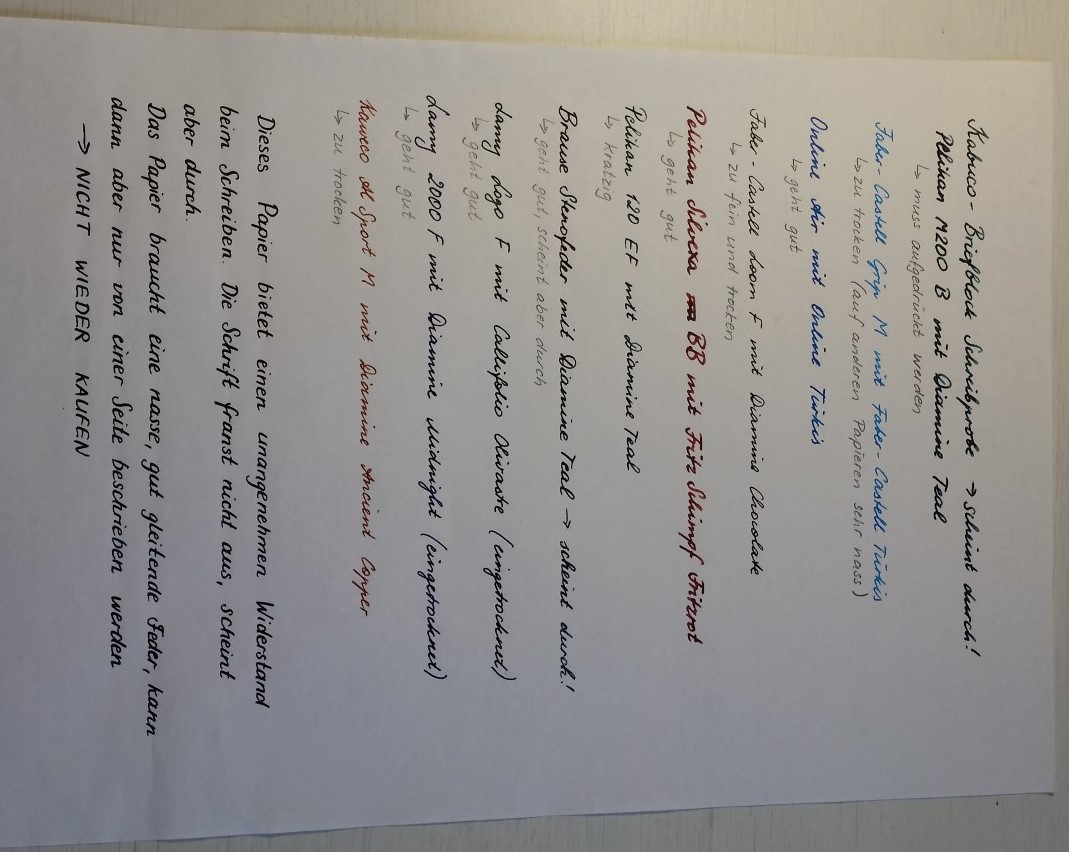 Kabuco-Briefblock Schreibprobe → scheint durch!
Pelikan M200 B mit Diamine Teal
↳ muss aufgedrückt werden
Faber-Castell Grip M mit Faber-Castell Türkis
↳ zu trocken (auf anderen Papieren sehr nass)
Online Air mit Online Türkis
↳ geht gut
Faber-Castell Loom F mit Diamine Chocolate
↳ zu fein und trocken
Pelikan Silvexa BB mit Fritz Schimpf Fritzrot
↳ geht gut
Pelikan 120 EF mit Diamine Teal
↳ kratzig
Brause Stenofeder mit Diamine Teal → scheint durch!
↳ geht gut, scheint aber durch
Lamy Logo F mit Callifolio Olivastre (eingetrocknet)
↳ geht gut
Lamy 2000 F mit Diamine Midnight (eingetrocknet)
↳ geht gut
Kaweco Al Sport M mit Diamine Ancient Copper
↳ zu trocken
Dieses Papier bietet einen unangenehmen Widerstand
beim Schreiben. Die Schrift franst nicht aus, scheint
aber durch.
Das Papier braucht eine nasse, gut gleitende Feder, kann
dann aber nur von einer Seite beschrieben werden
→ NICHT WIEDER KAUFEN